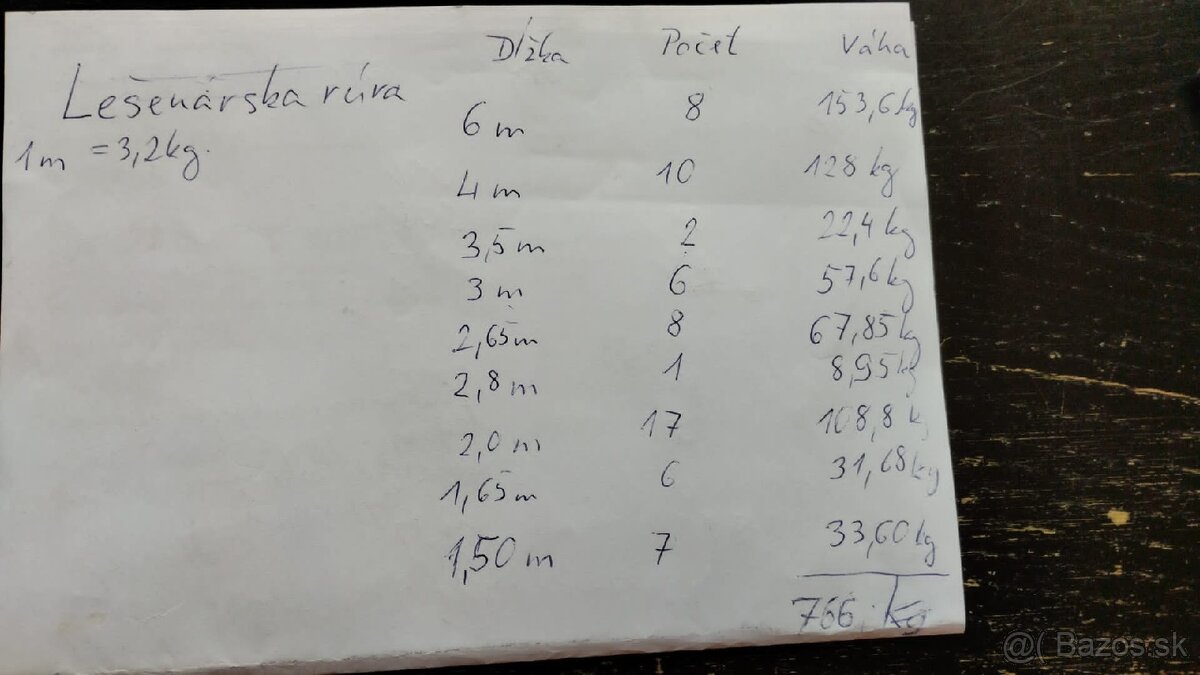 Dĺžka Počet Váha
Lešenárska rúra
1m = 3,2kg.
6 m 8 153,6 kg
4 m 10 128 kg
3,5 m 2 22,4 kg
3 m 6 57,6 kg
2,65 m 8 67,85 kg
2,8 m 1 8,95 kg
2,0 m 17 108,8 k
1,65 m 6 31,68 kg
1,50 m 7 33,60 kg
766. kg
@( Bazos.sk